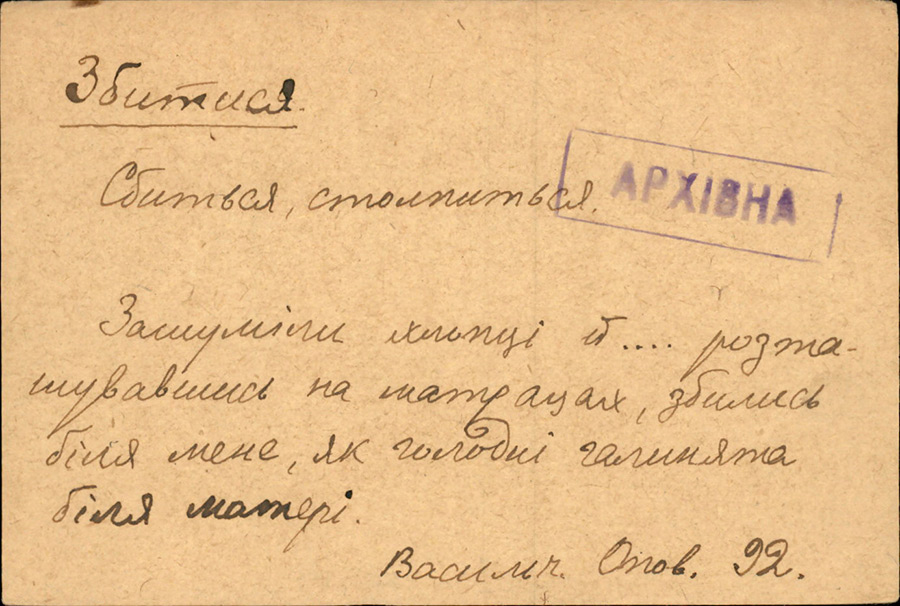 Збитися.
Сбиться, столпиться.
АРХІВНА
Зашуміли хлопці й .... розта-
шувавшись на матрацах, збились
біля мене, як голодні галинята
біля матері.
Васильч. Опов. 92.